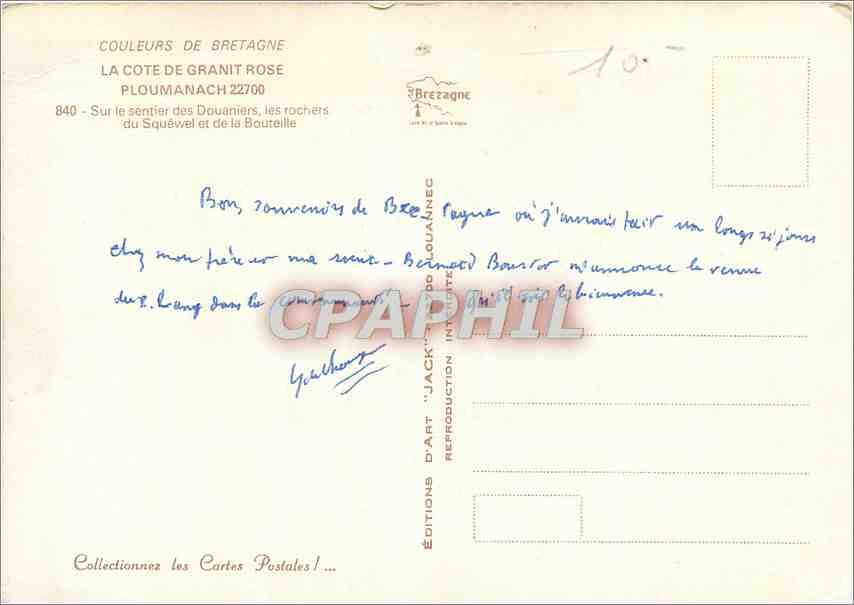 COULEURS DE BRETAGNE
LA COTE DE GRANIT ROSE
PLOUMANACH 22700
840 - Sur le sentier des Douaniers, les rochers
du Squêwel et de la Bouteille
10.-
Brezagne
Bons souvenirs de Bretagne où j'aurai fait un long séjour
chez mon frère et ma - Bernard m'annonce la venue
du dans la - qu'il soit le bienvenu.
CPAPHIL
ÉDITIONS D'ART "JACK" LOUANNEC
REPRODUCTION INTERDITE
Collectionnez les Cartes Postales ! ...